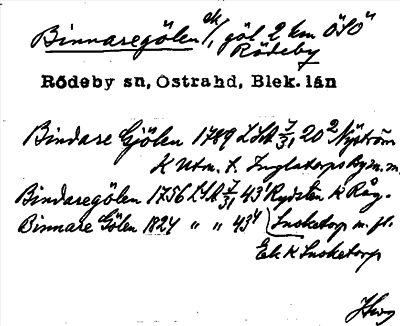 Binnaregölen ek/1, göl 2 km ÖSÖ"
Rödeby
Rödeby sn, Östrahd, Blek. län
Bindare Gjölen 1789 LSA 7/31 20² Nyström
K Utm. t. Inglatorps By m. m.
Bindaregölen 1756 LSA 7/31 43' Rydsten K Råg.
Binnare Gölen 1824 " " 43⁴ Lusketorp m. fl.
Ek K Lusketorp